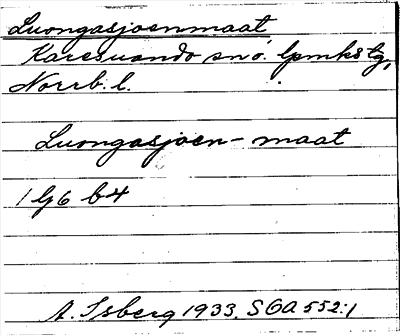 Luongasjoenmaat
Karesuando snö. lpmkslg,
Norrb. l.
Luongasjoen-maat
1 lg 6 b4
A. Isberg 1933. SOA 552:1